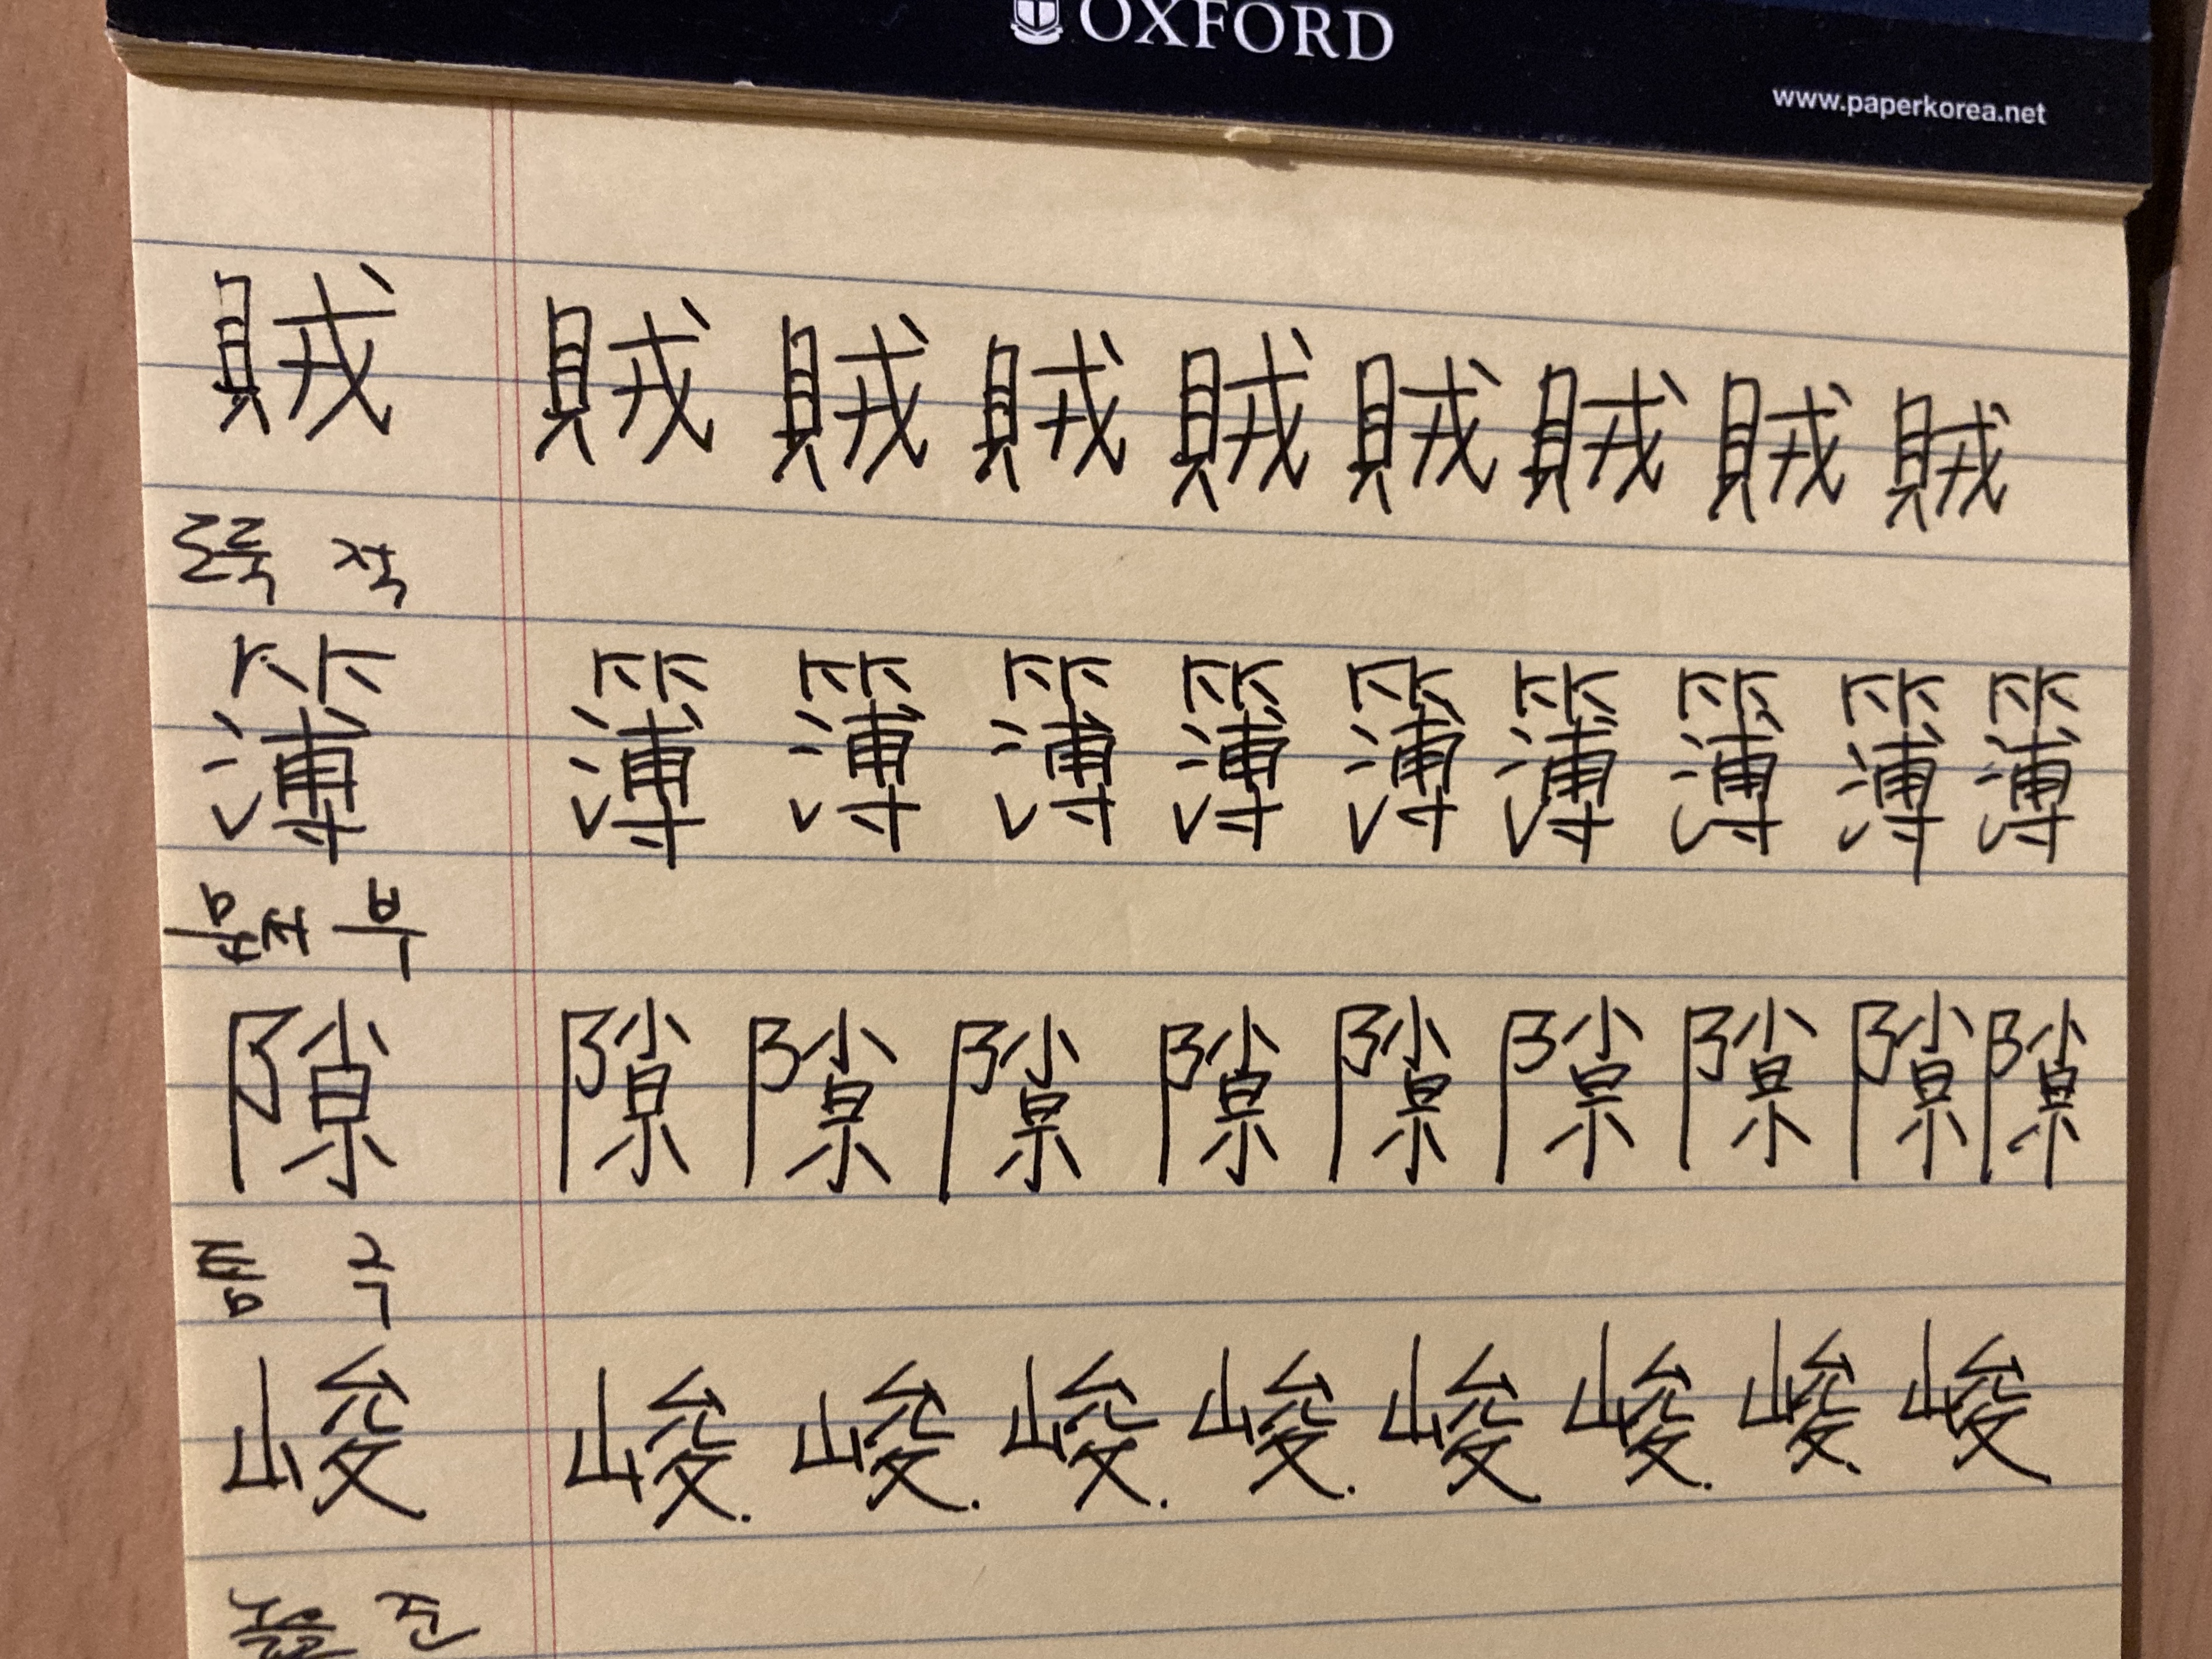 OXFORD
www.paperkorea.net
賊 賊 賊 賊 賊 賊 賊 賊 賊
도둑 적
簿 簿 簿 簿 簿 簿 簿 簿 簿 簿
문서 부
隙 隙 隙 隙 隙 隙 隙 隙 隙 隙
틈 극
峻 峻. 峻. 峻. 峻. 峻 峻. 峻. 峻
높을 준